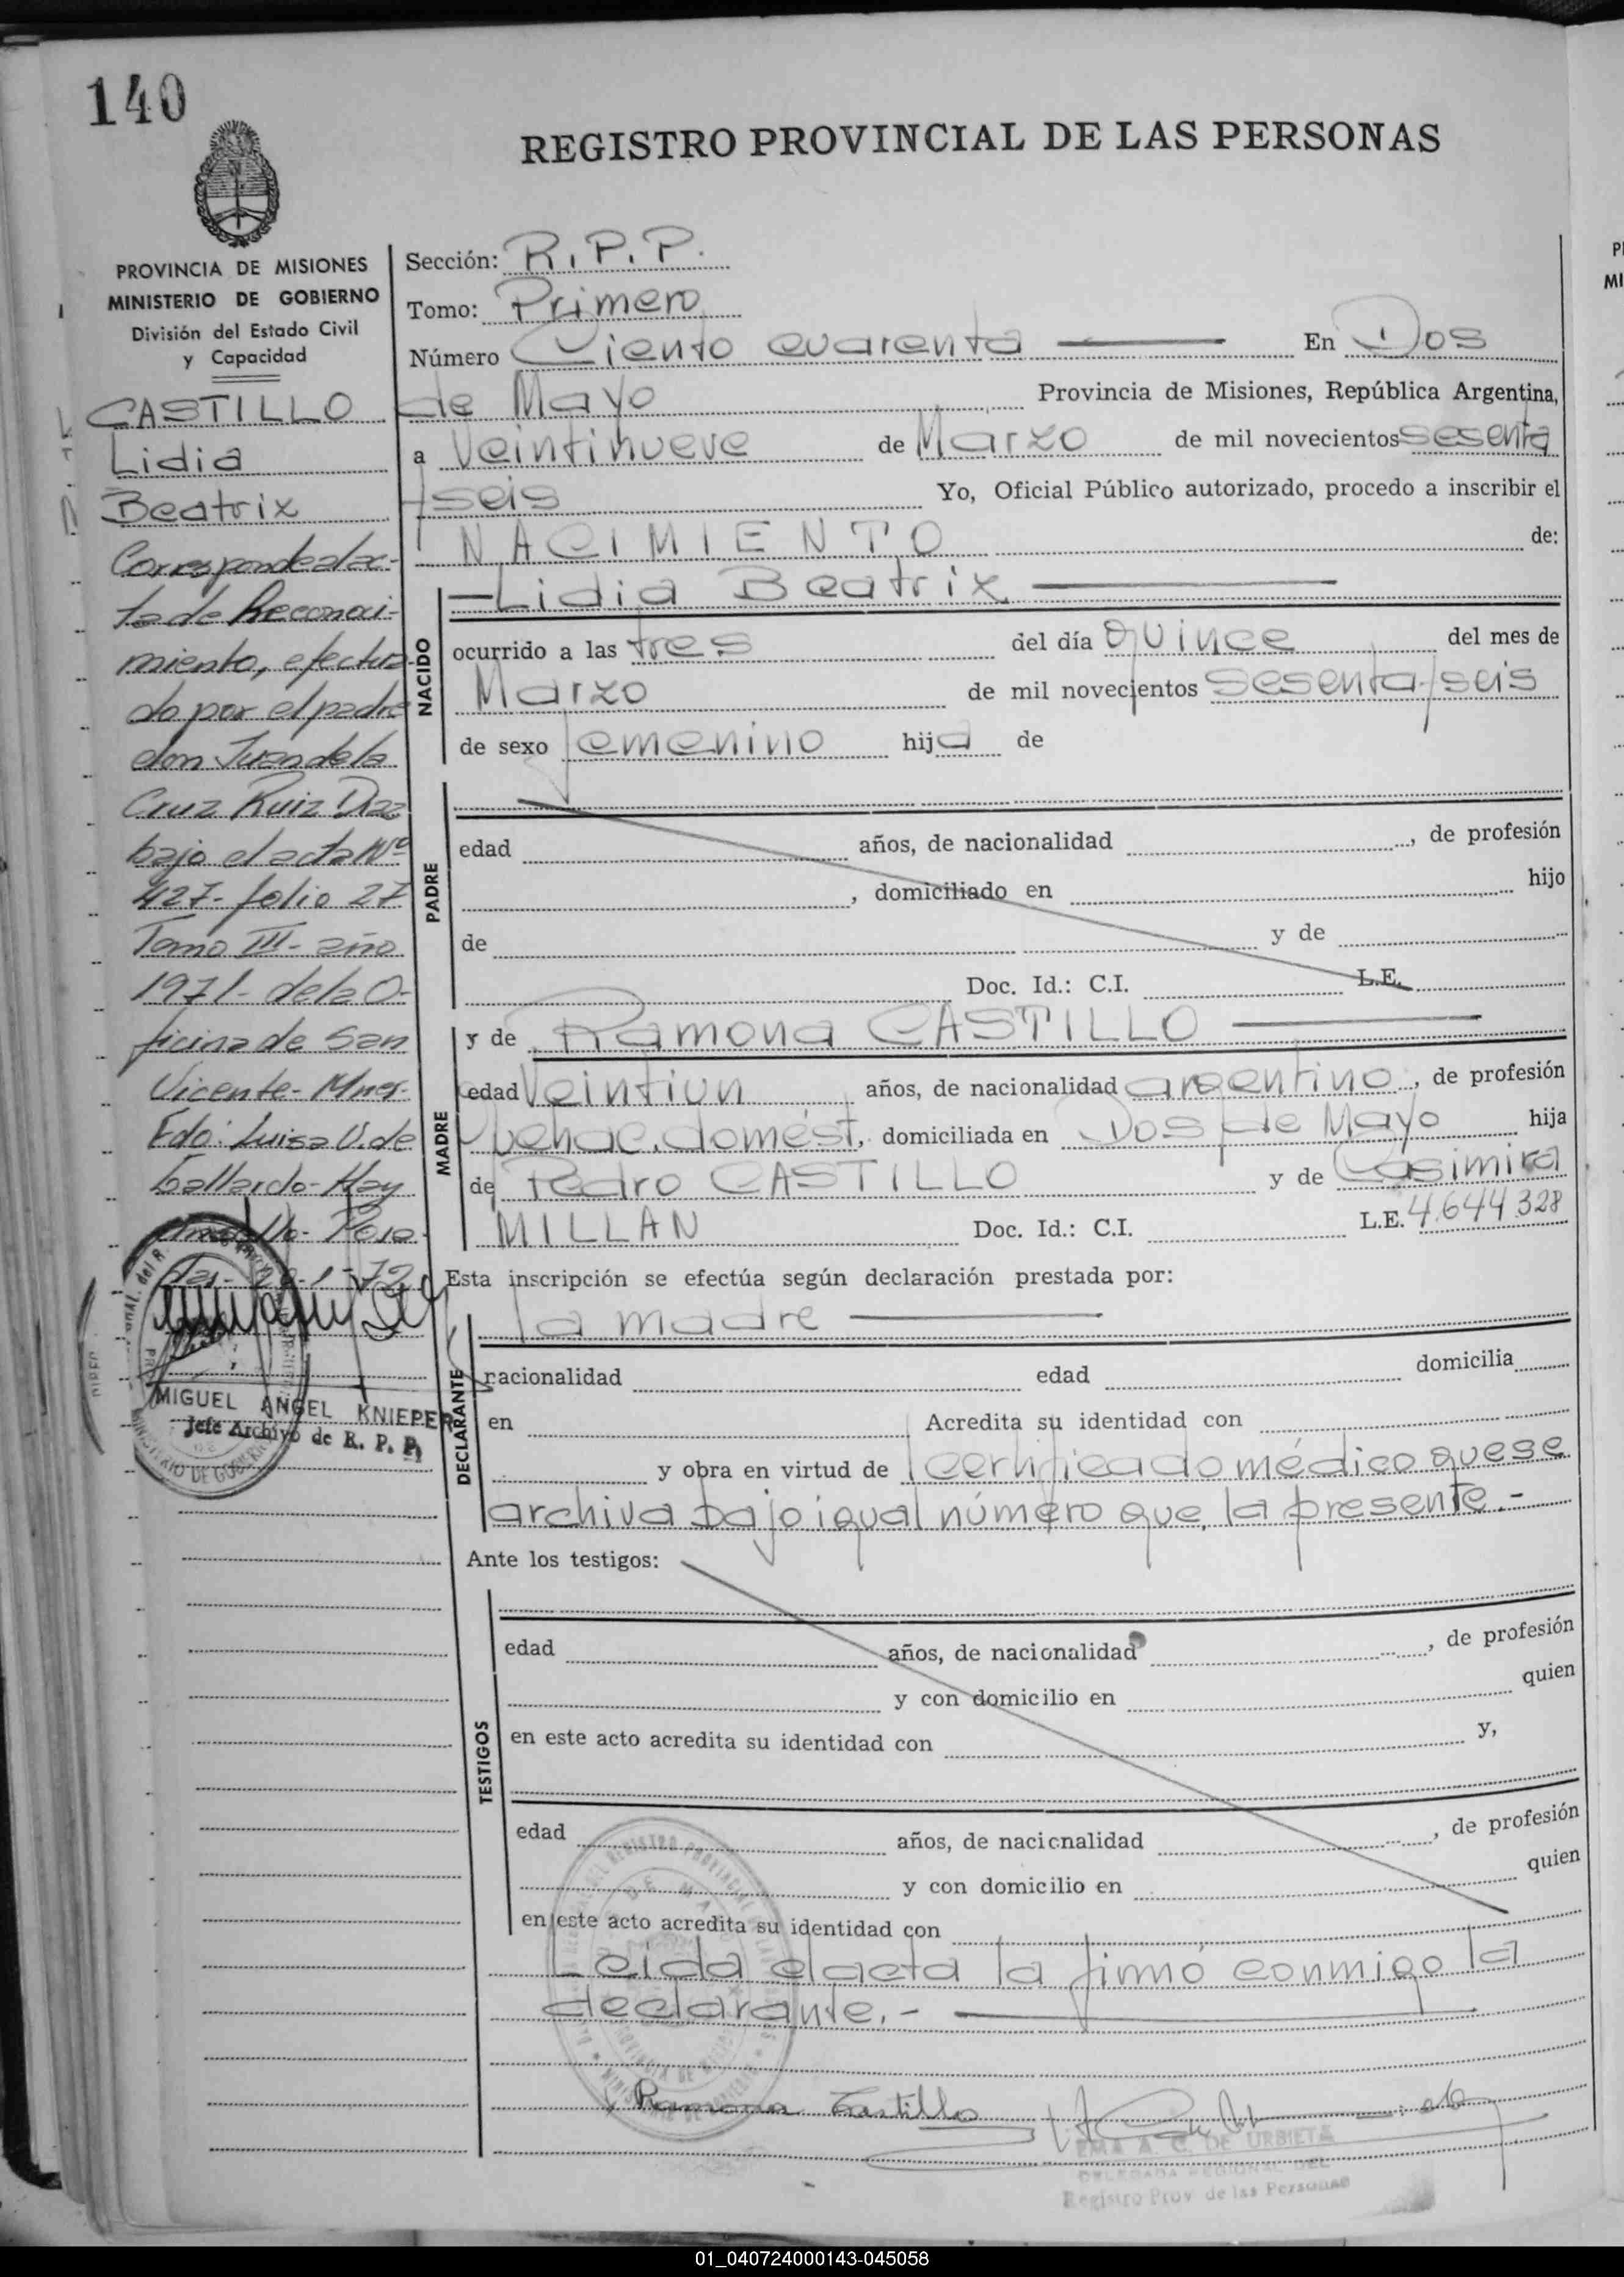 140
REGISTRO PROVINCIAL DE LAS PERSONAS
PROVINCIA DE MISIONES
MINISTERIO DE GOBIERNO
División del Estado Civil
y Capacidad
CASTILLO
Lidia
Beatrix
Corresponde al ac-
ta de Reconoci-
miento, efectua-
do por el padre
don Juan de la
Cruz Ruiz Diaz
bajo el acta Nº
427- folio 27
Tomo III- año
1971- de la O-
ficina de San
Vicente- Mnes-
Fdo: Luisa V. de
Gallardo- Hay
MIGUEL ANGEL KNIEPER
Jefe Archivo de R. P. P.
Sección: R.P.P.
Tomo: Primero
Número Ciento cuarenta En Dos
de Mayo Provincia de Misiones, República Argentina,
a Veintinueve de Marzo de mil novecientos sesenta
y seis Yo, Oficial Público autorizado, procedo a inscribir el
NACIMIENTO de:
NACIDO
- Lidia Beatrix
ocurrido a las tres del día quince del mes de
Marzo de mil novecientos sesenta y seis
de sexo femenino hija de
PADRE
edad años, de nacionalidad , de profesión
, domiciliado en hijo
de y de
Doc. Id.: C.I. L.E.
MADRE
y de Ramona CASTILLO
edad Veintiun años, de nacionalidad argentino, de profesión
quehac. domést, domiciliada en Dos de Mayo hija
de Pedro CASTILLO y de Casimira
MILLAN Doc. Id.: C.I. L.E. 4.644.328
Esta inscripción se efectúa según declaración prestada por:
DECLARANTE
la madre
nacionalidad edad domicilia
en Acredita su identidad con
y obra en virtud de certificado médico que se
archiva bajo igual número que la presente.-
Ante los testigos:
TESTIGOS
edad años, de nacionalidad , de profesión
y con domicilio en quien
en este acto acredita su identidad con y,
edad años, de nacionalidad , de profesión
y con domicilio en quien
en este acto acredita su identidad con
Leida el acta la firmó conmigo la
declarante.-
Ramona Castillo
EMA A. C. DE URBIETA
DELEGADA REGIONAL DEL
Registro Prov. de las Personas
01_040724000143-045058